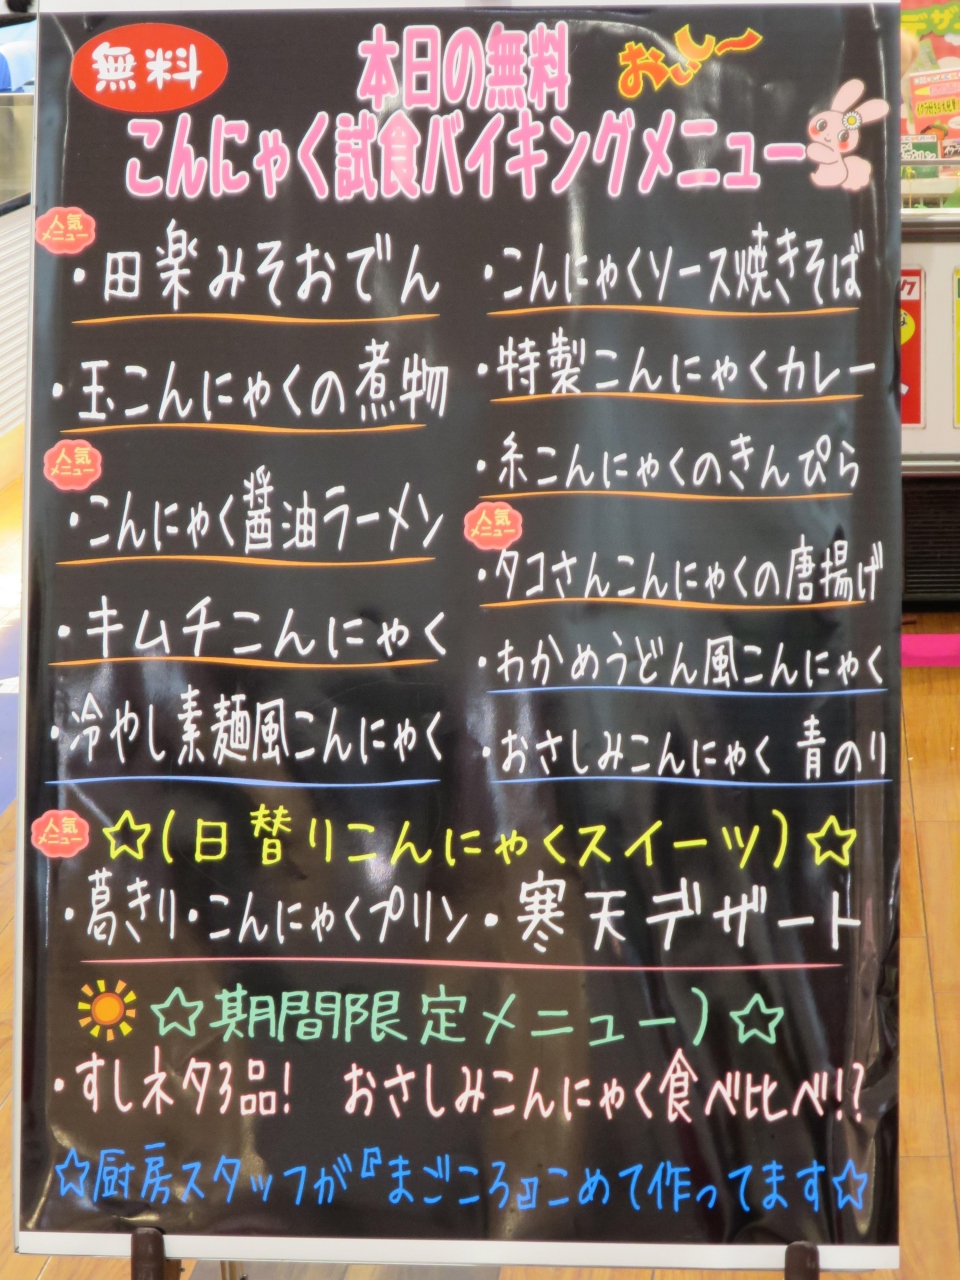 無料
本日の無料
おいしー
こんにゃく試食バイキングメニュー
人気
メニュー
・田楽みそおでん
・玉こんにゃくの煮物
人気
メニュー
・こんにゃく醤油ラーメン
・キムチこんにゃく
・冷やし素麺風こんにゃく
・こんにゃくソース焼きそば
・特製こんにゃくカレー
・糸こんにゃくのきんぴら
人気
メニュー
・タコさんこんにゃくの唐揚げ
・わかめうどん風こんにゃく
・おさしみこんにゃく 青のり
人気
メニュー
☆(日替りこんにゃくスイーツ)☆
・葛きり・こんにゃくプリン・寒天デザート
☆期間限定メニュー)☆
・すしネタ3品! おさしみこんにゃく食べ比べ!?
☆厨房スタッフが『まごころ』こめて作ってます☆